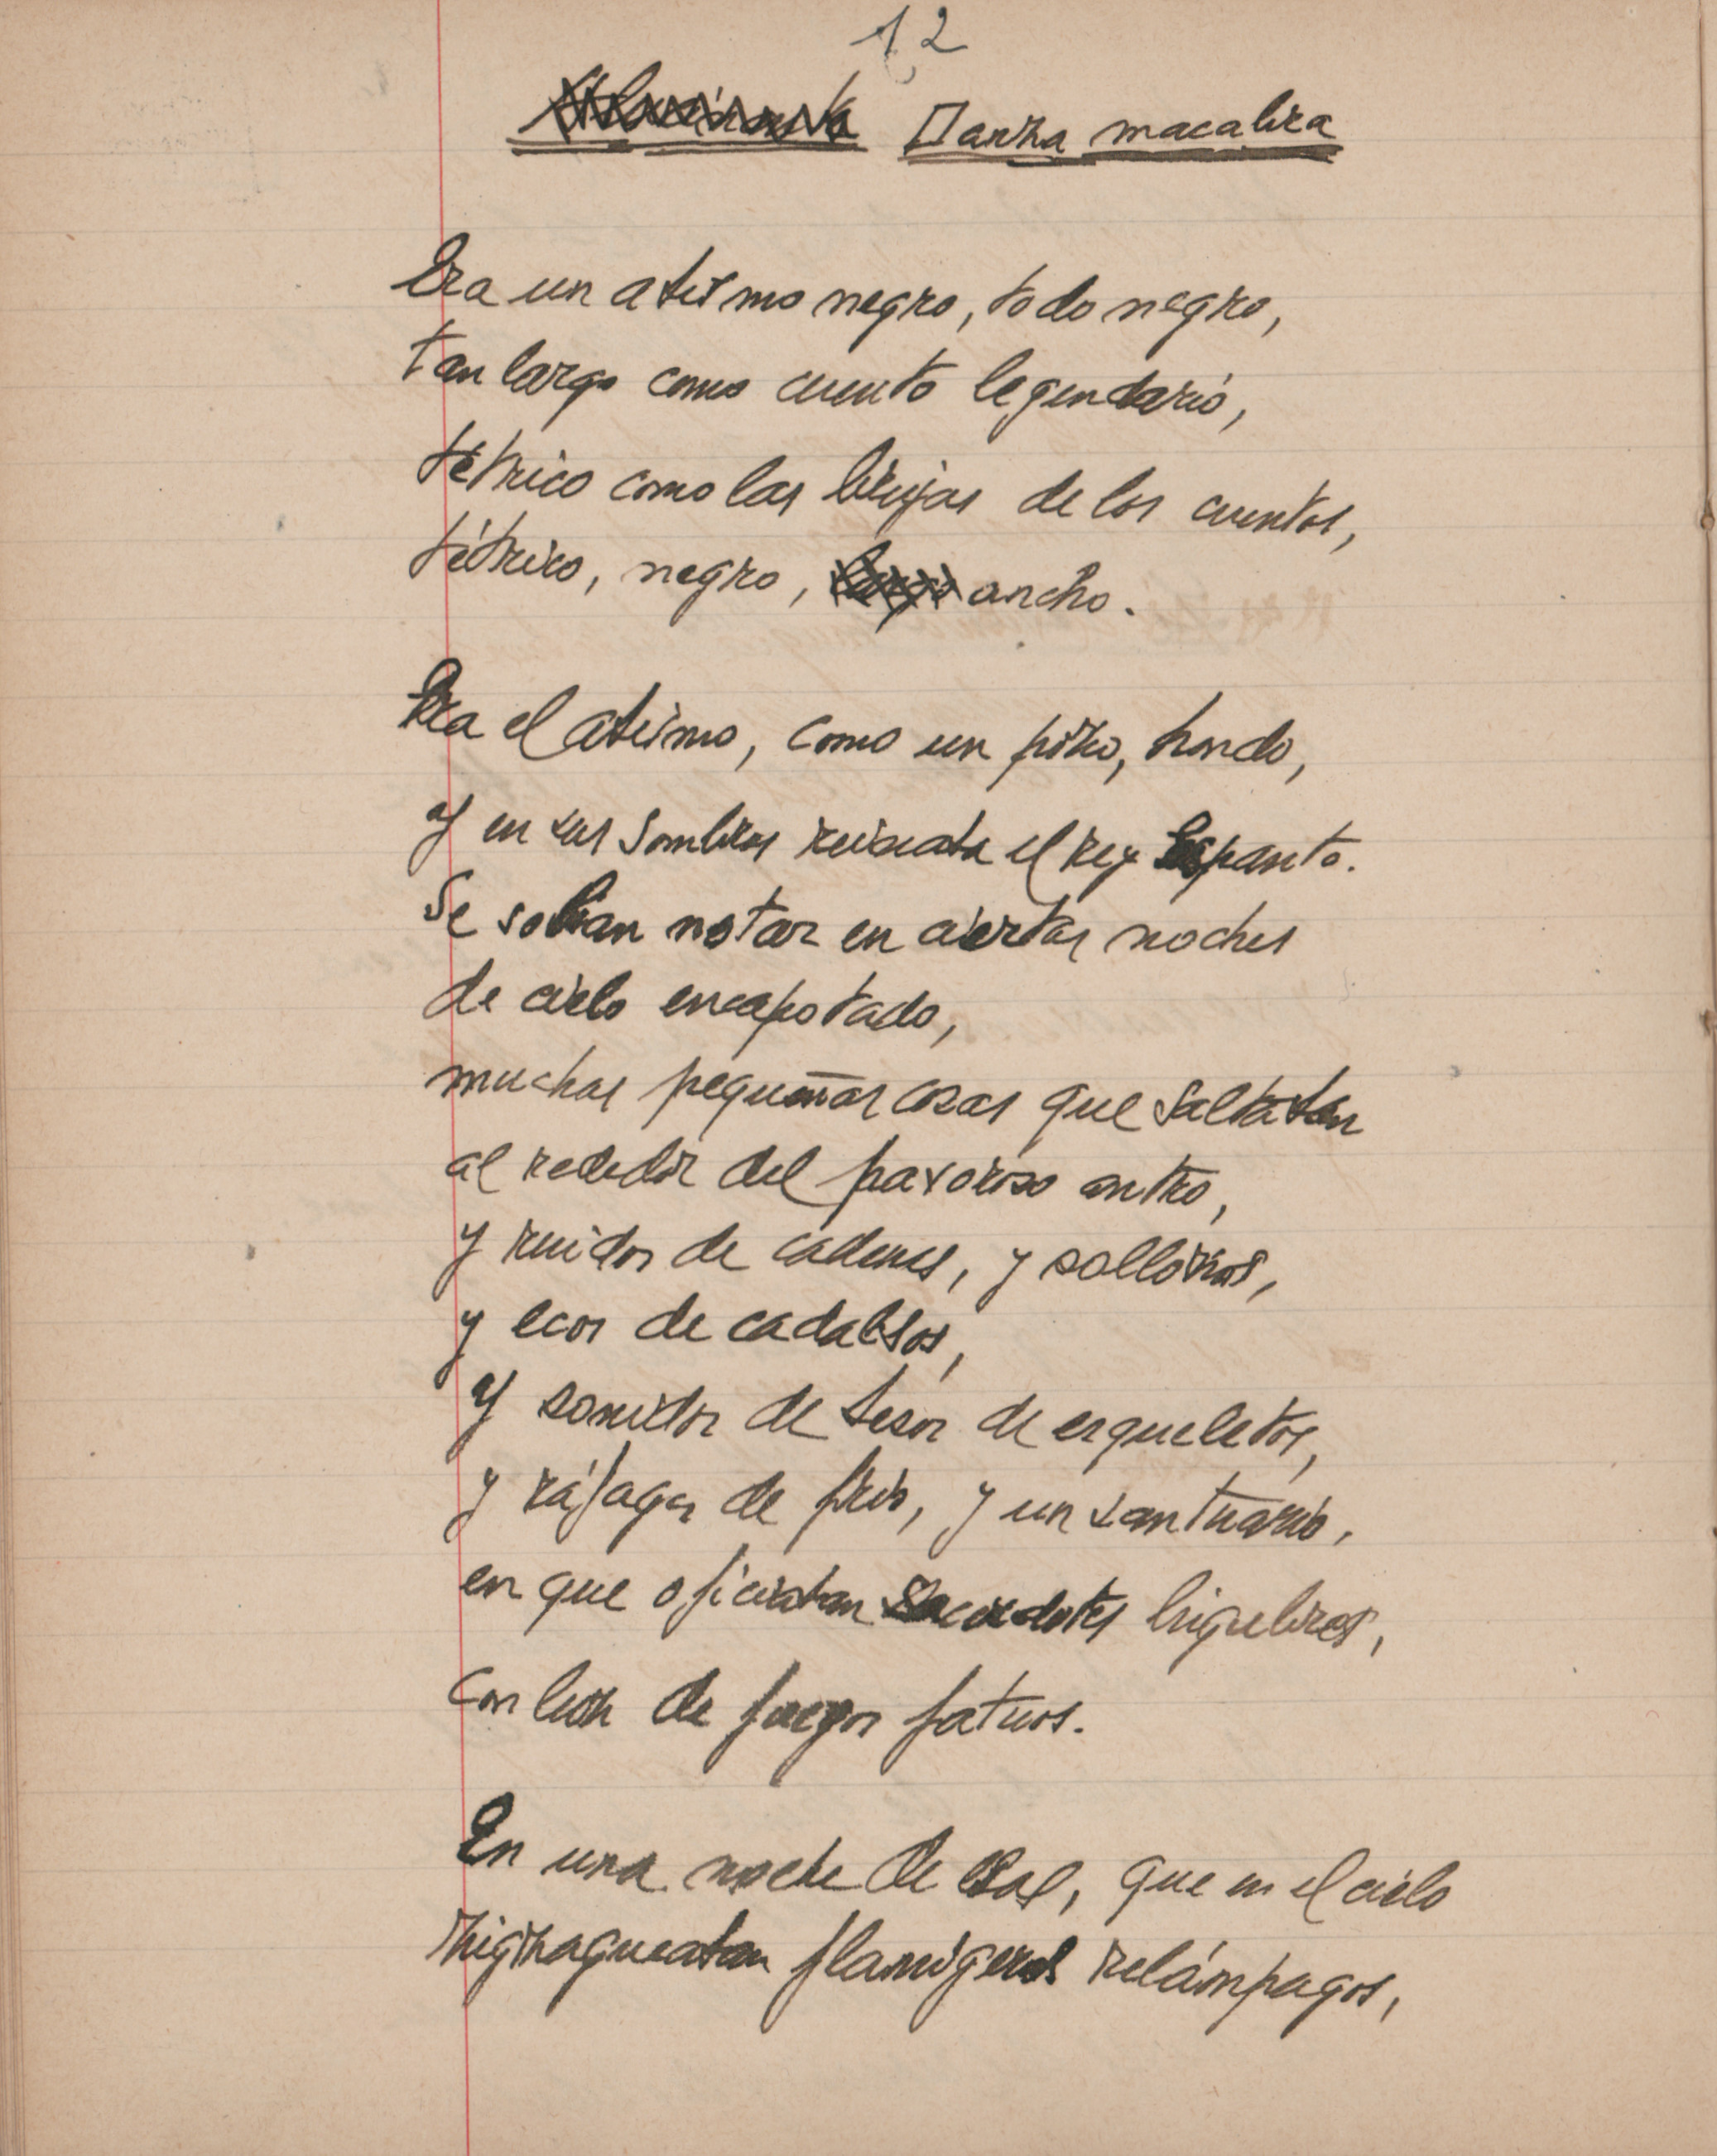 12
Danza macabra
Era un abismo negro, todo negro,
tan largo como cuento legendario,
tétrico como las brujas de los cuentos,
tétrico, negro, largo ancho.
Era el abismo, como un pozo, hondo,
y en sus sombras reinaba el rey Espanto.
Se solian notar en ciertas noches
de cielo encapotado,
muchas pequeñas cosas que saltaban
al rededor del pavoroso antro,
y ruidos de cadenas, y sollozos,
y ecos de cadalsos,
y sonidos de besos de esqueletos,
y ráfagas de frio, y un santuario,
en que oficiaban sacerdotes lúgubres,
con luces de fuegos fatuos.
En una noche de Baal, que en el cielo
zigzagueaban flamígeros relámpagos,